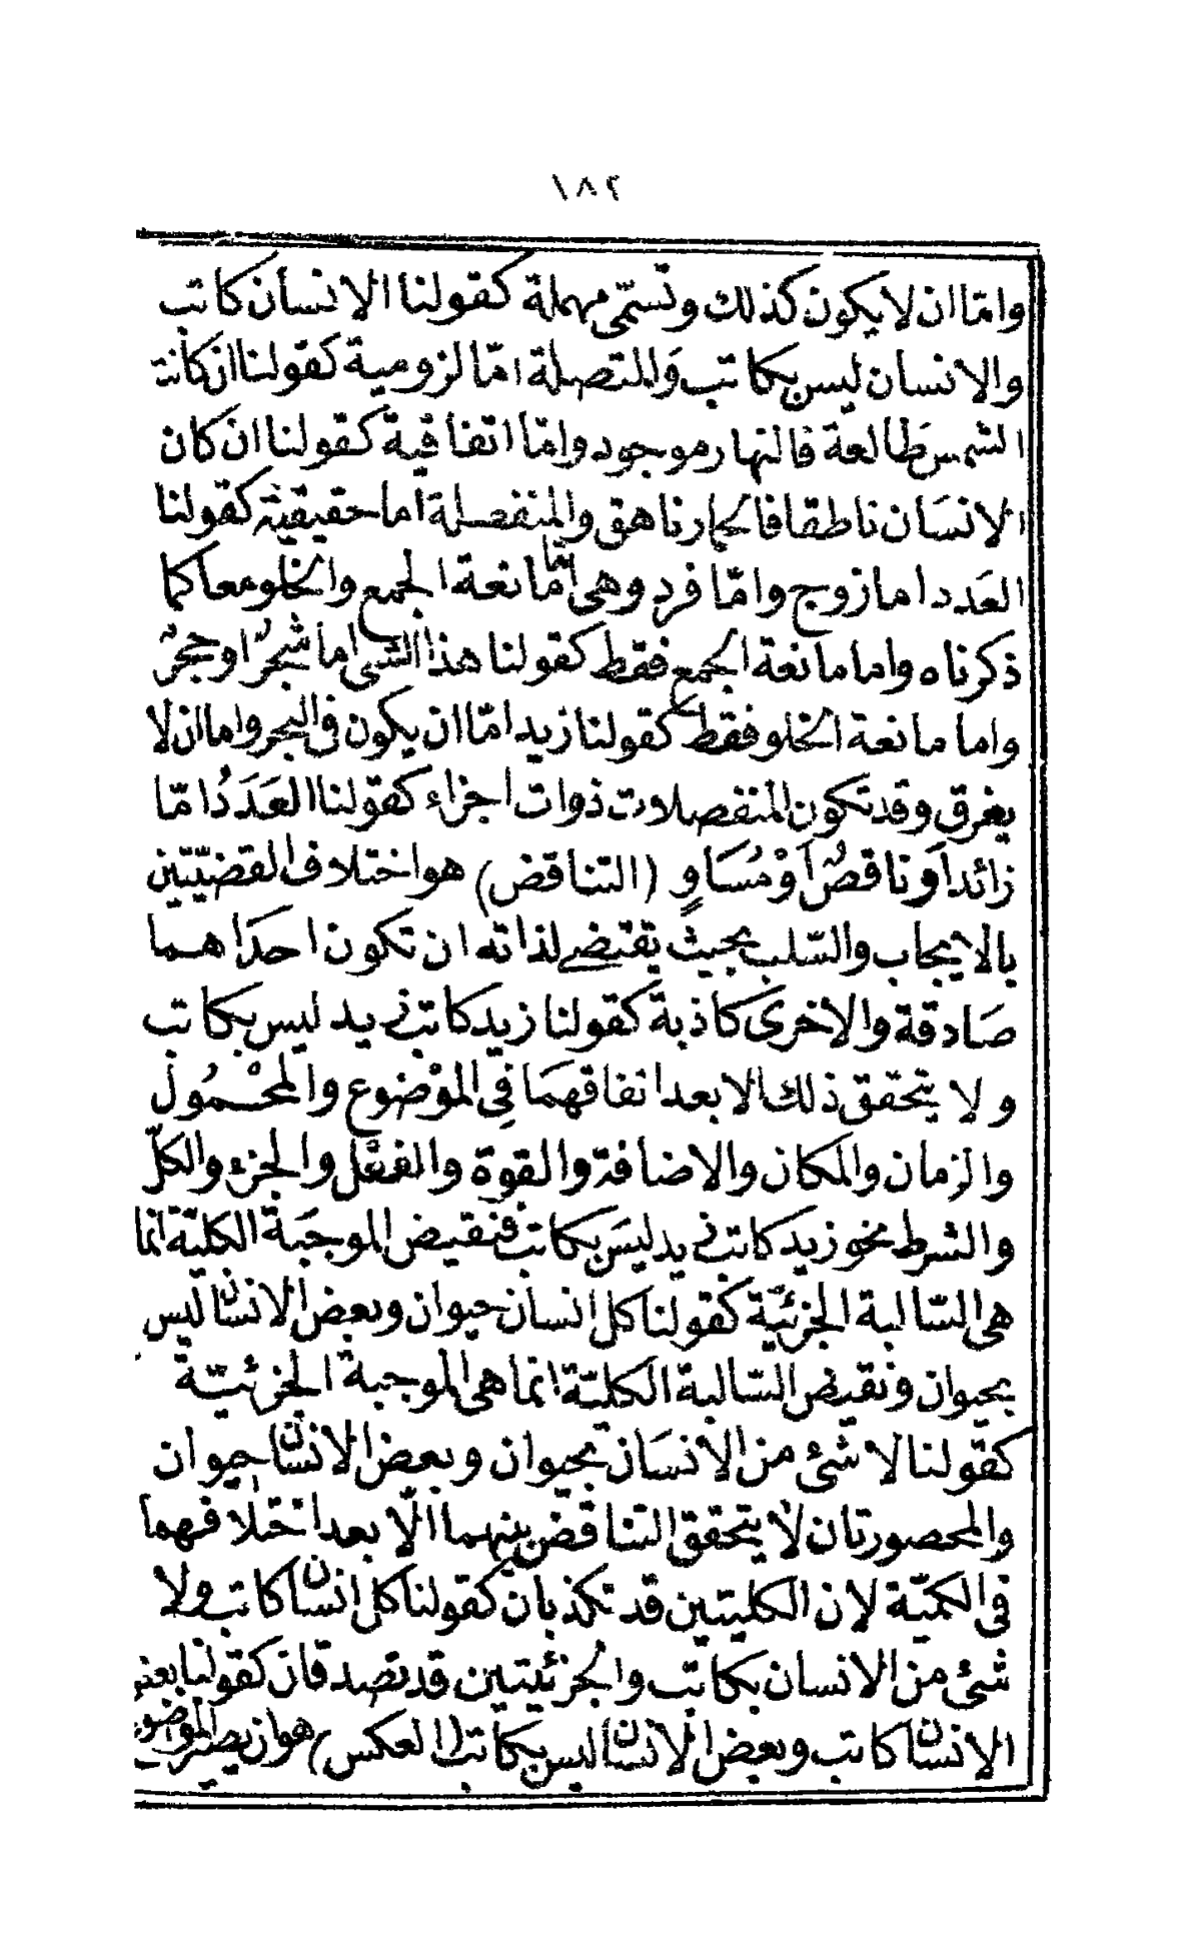 ١٨٢
وامّا ان لا يكون كذلك وتسمّى مهملة كقولنا الانسان كاتب
والانسان ليس بكاتب وَالمتصلة امّا لزومية كقولنا ان كانت
الشمس طالعة فالنهار موجود وامّا اتفاقية كقولنا ان كان
الانسَان ناطقا فالحمار ناهق والمنفصلة اما حقيقية كقولنا
العَدد اما زوج وامّا فرد وهى امّا مانعة الجمع والخلو معا كما
ذكرناه واما مانعة الجمع فقط كقولنا هذا الشى اما شجرٌ او حجرٌ
واما مانعة الخلو فقط كقولنا زيد امّا ان يكون فى البحر واما ان لا
يغرق وقد تكون المنفصلات ذوات اجزاء كقولنا العَدَدُ امّا
زائد اَو ناقصٌ اَوْ مُسَاوٍ (التناقض) هو اختلاف القضيّتين
بالايجاب والسّلب بحيث يقتضى لذاته ان تكون احدَاهما
صَادقة والاخرى كاذبة كقولنا زيد كاتب زيد ليس بكاتب
ولا يتحقق ذلك الا بعد اتفاقهمَا فِى الموْضوع والمحْمُول
والزمان والمكان والاضافة والقوة والفعْل والجزء والكلّ
والشرط نحو زيد كاتب زيد ليسَ بكاتب فنَقيض الموجَبة الكليّة انما
هى السّالبة الجزئيّة كقولنا كل انسان حيوان وبعض الانسان ليس
بحيوان ونقيض السّالبة الكليّة انما هى الموجبة الجزئيّة
كقولنا لا شئ من الانسَان بحيوان وبعض الانسان حيوان
والمحصورتان لا يتحقق التناقض بينهما الّا بعد اختلافهما
فى الكميّة لان الكليتين قد تكذبان كقولنا كل انسان كاتب ولا
شئ من الانسان بكاتب والجزئيتين قد تصدقان كقولنا بعض
الانسان كاتب وبعض الانسان ليس بكاتب (العكس) هو ان يصير الموضوع